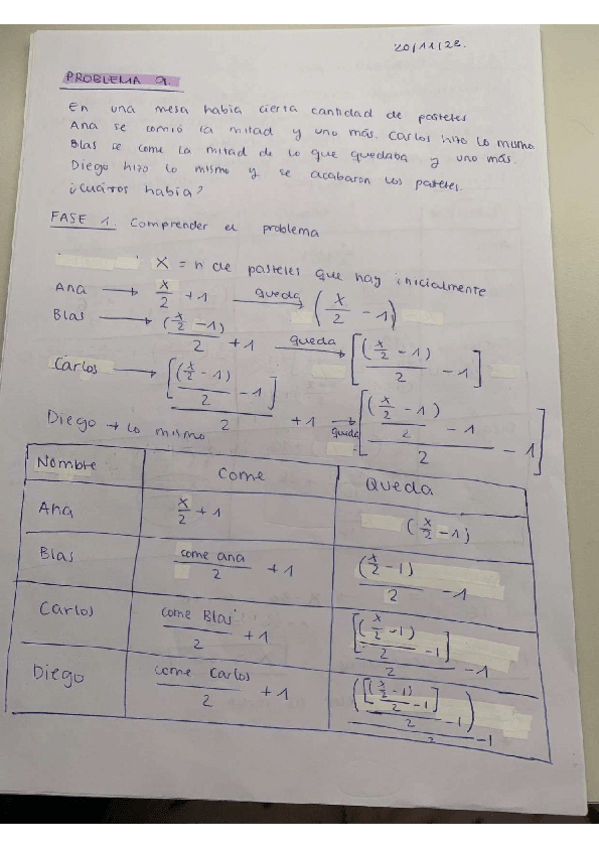 20/11/22.
PROBLEMA 2.
En una mesa había cierta cantidad de pasteles
Ana se comió la mitad y uno más. Carlos hizo lo mismo.
Blas se come la mitad de lo que quedaba y uno más.
Diego hizo lo mismo y se acabaron los pasteles.
¿cuántos había?
FASE 1. Comprender el problema
X = n de pasteles que hay inicialmente
Ana → x/2 + 1 queda → (x/2 - 1)
Blas → (x/2 - 1)/2 + 1 queda → [(x/2 - 1)/2 - 1]
Carlos → [(x/2 - 1)/2 - 1]/2 + 1 queda → [[(x/2 - 1)/2 - 1]/2 - 1]
Diego → lo mismo
Nombre Come Queda
Ana x/2 + 1 (x/2 - 1)
Blas come ana/2 + 1 (x/2 - 1)/2 - 1
Carlos come Blas/2 + 1 [(x/2 - 1)/2 - 1]/2 - 1
Diego come Carlos/2 + 1 ([(x/2 - 1)/2 - 1]/2 - 1)/2 - 1